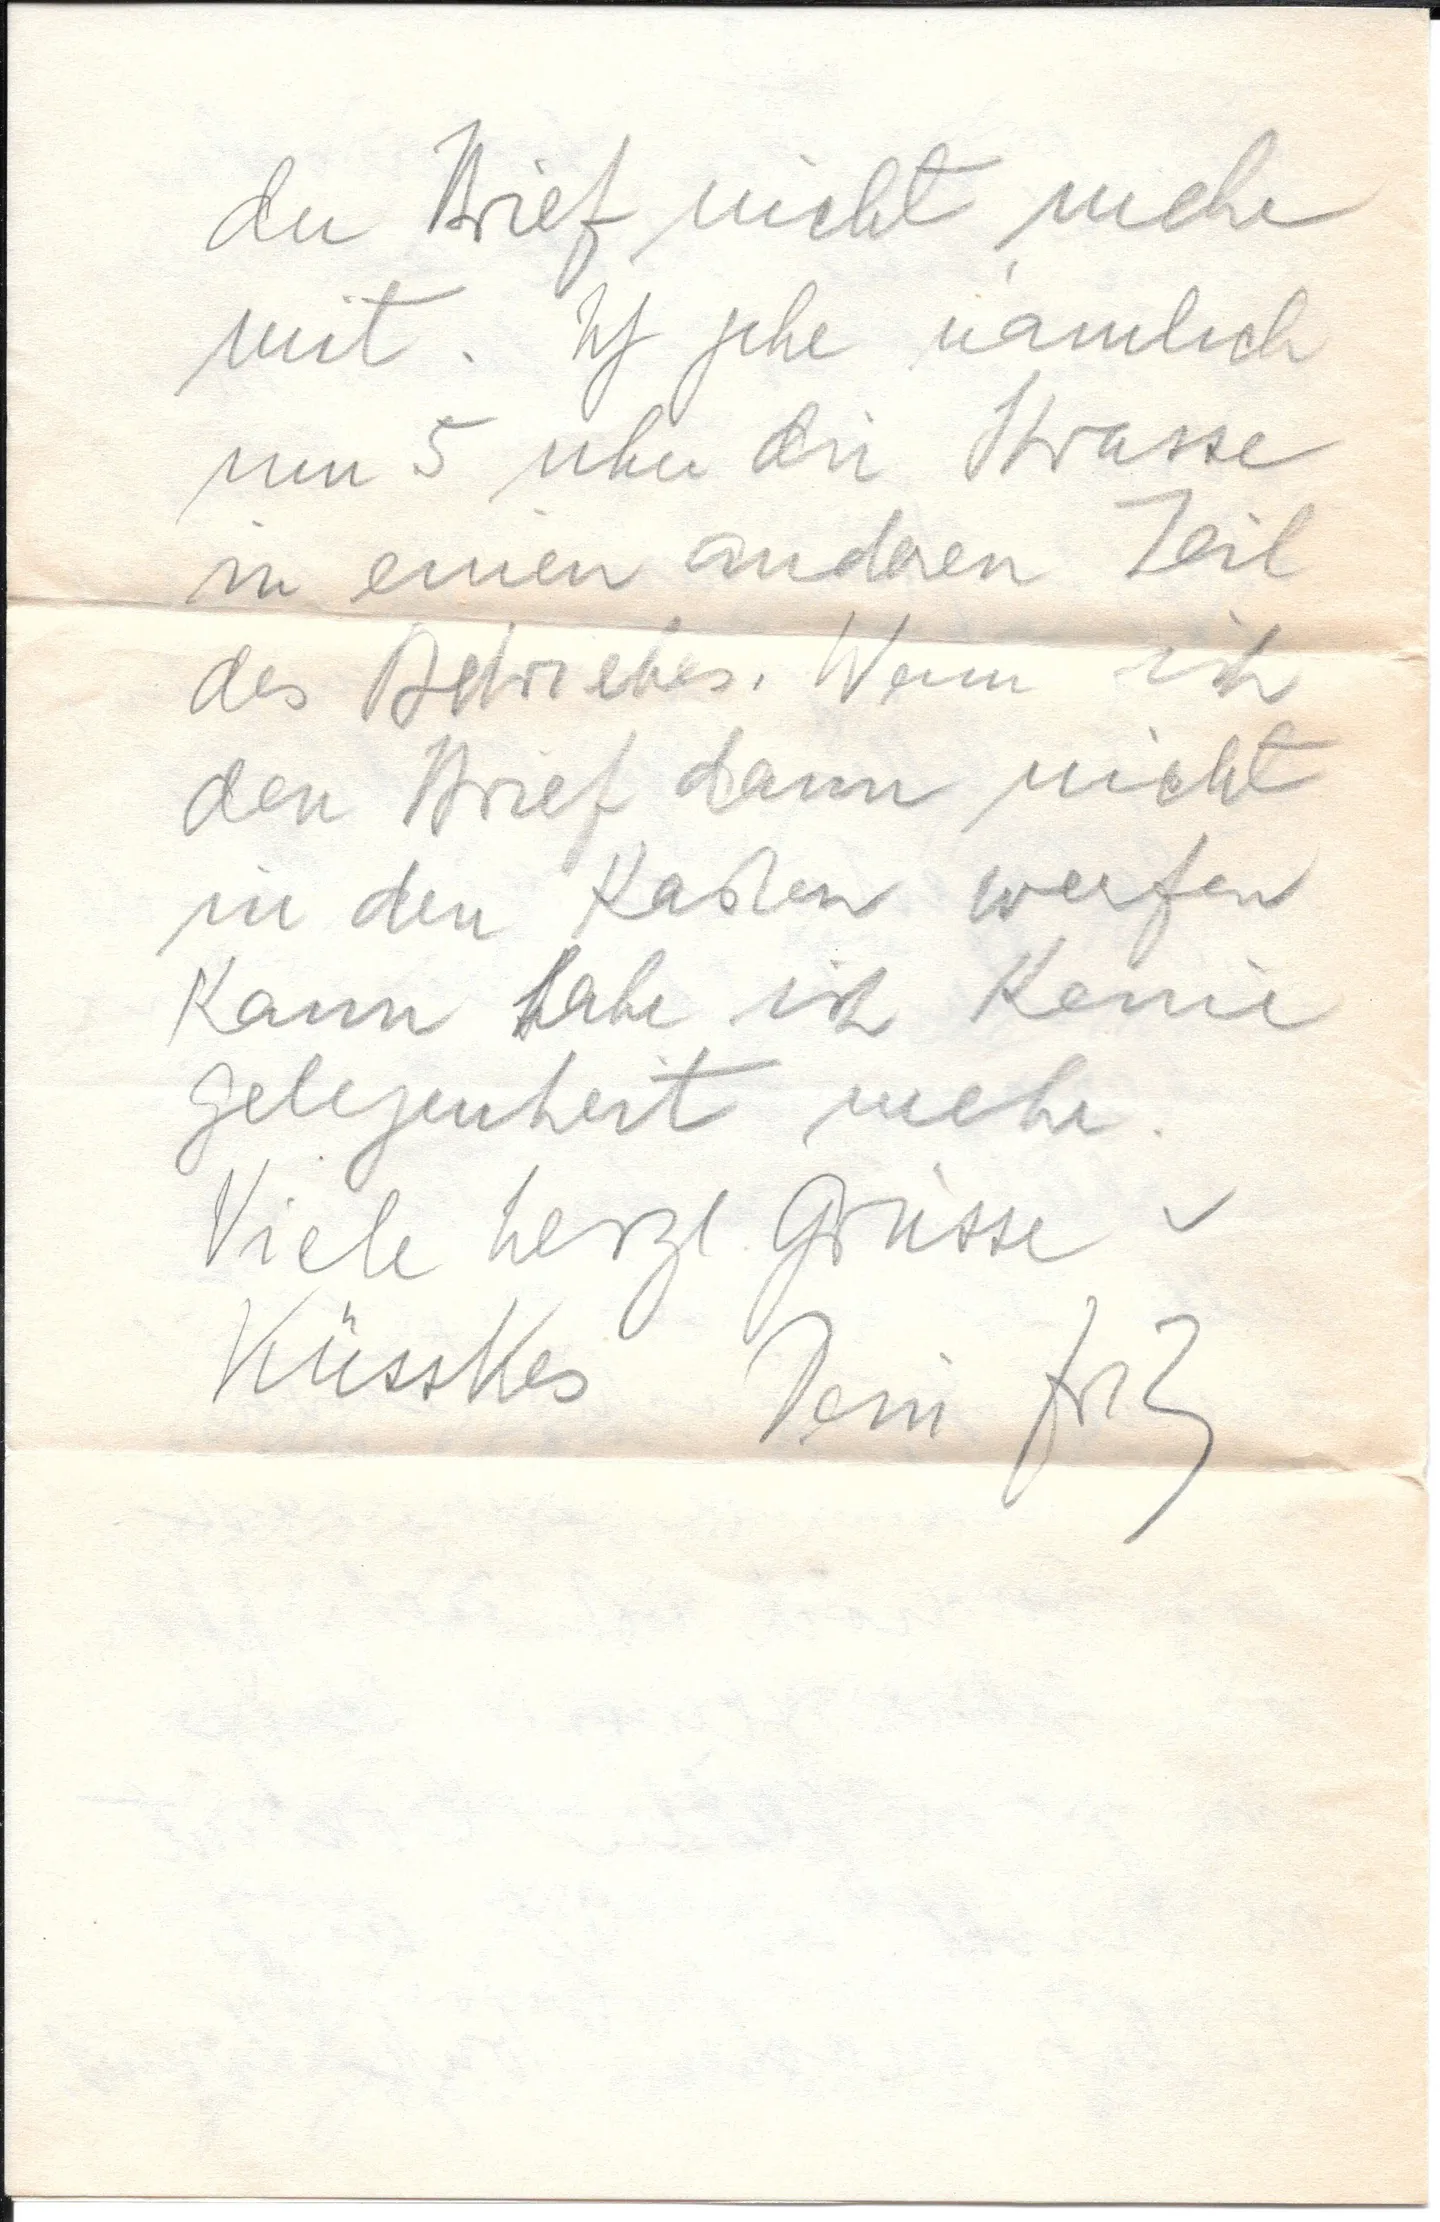 den Brief nicht mehr
mit. Ich gehe nämlich
um 5 uhr die Strasse
in einen anderen Teil
des Betriebes. Wenn ich
den Brief dann nicht
in den Kasten werfen
Kann habe ich Keine
gelegenheit mehr.
Viele herzl. Grüsse u
Küsskes Dein Fritz